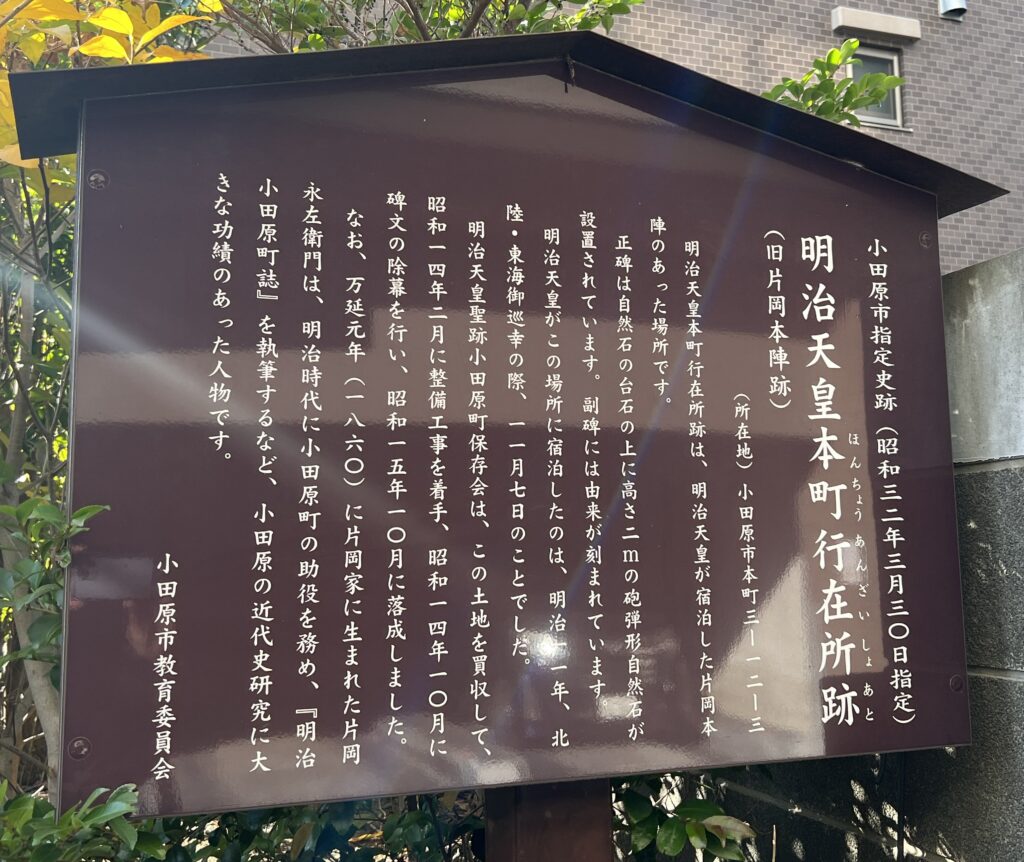 小田原市指定史跡（昭和三二年三月三〇日指定）
明治天皇本町行在所跡
ほんちょう あんざいしょ あと
（旧片岡本陣跡）
（所在地）小田原市本町三ー一二ー三
明治天皇本町行在所跡は、明治天皇が宿泊した片岡本
陣のあった場所です。
正碑は自然石の台石の上に高さ二ｍの砲弾形自然石が
設置されています。副碑には由来が刻まれています。
明治天皇がこの場所に宿泊したのは、明治一一年、北
陸・東海御巡幸の際、一一月七日のことでした。
明治天皇聖跡小田原町保存会は、この土地を買収して、
昭和一四年二月に整備工事を着手、昭和一四年一〇月に
碑文の除幕を行い、昭和一五年一〇月に落成しました。
なお、万延元年（一八六〇）に片岡家に生まれた片岡
永左衛門は、明治時代に小田原町の助役を務め、『明治
小田原町誌』を執筆するなど、小田原の近代史研究に大
きな功績のあった人物です。
小田原市教育委員会